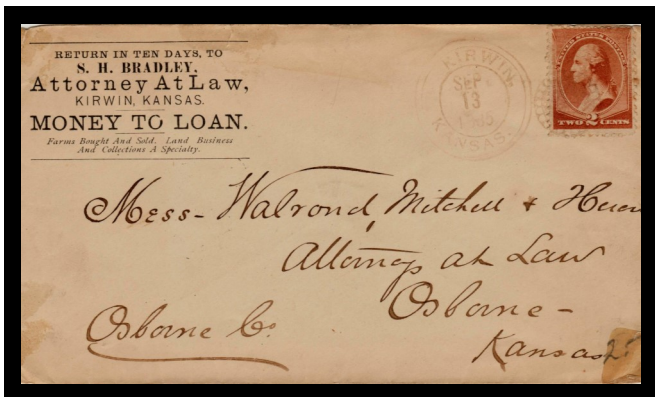 RETURN IN TEN DAYS, TO
S. H. BRADLEY,
Attorney At Law,
KIRWIN, KANSAS.
MONEY TO LOAN.
Farms Bought And Sold. Land Business
And Collections A Specialty.
KIRWIN,
SEP
13
KANSAS.
UNITED STATES POSTAGE
TWO 2 CENTS
Mess- Walrond, Mitchell &
Attorneys at Law
Osborne-
Osborne Co.
Kansas